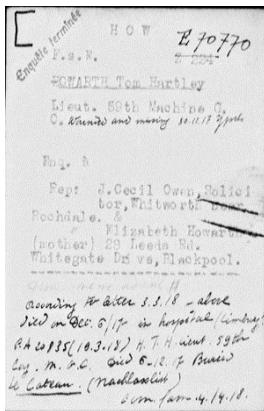 HOW
E 70770
Enquête terminée
F.s.W.
HOWARTH Tom Hartley
Lieut. 59th Machine G.
C. Wounded and missing 30.11.17
Enq. &
Rep: J.Cecil Owen, Solici
tor, Whitworth
Rochdale. &
" Elizabeth Howarth
(mother) 28 Leeds Rd.
Whitegate Drive, Blackpool.
According to letter 3.3.18 - above
died on Dec. 6/17 in hospital (Cambrai)
(19.3.18) H. T. H. Lieut. 59th
Coy. M. G. C. Died 6-12.17 Buried
le Cateau. (Nachlassliste)